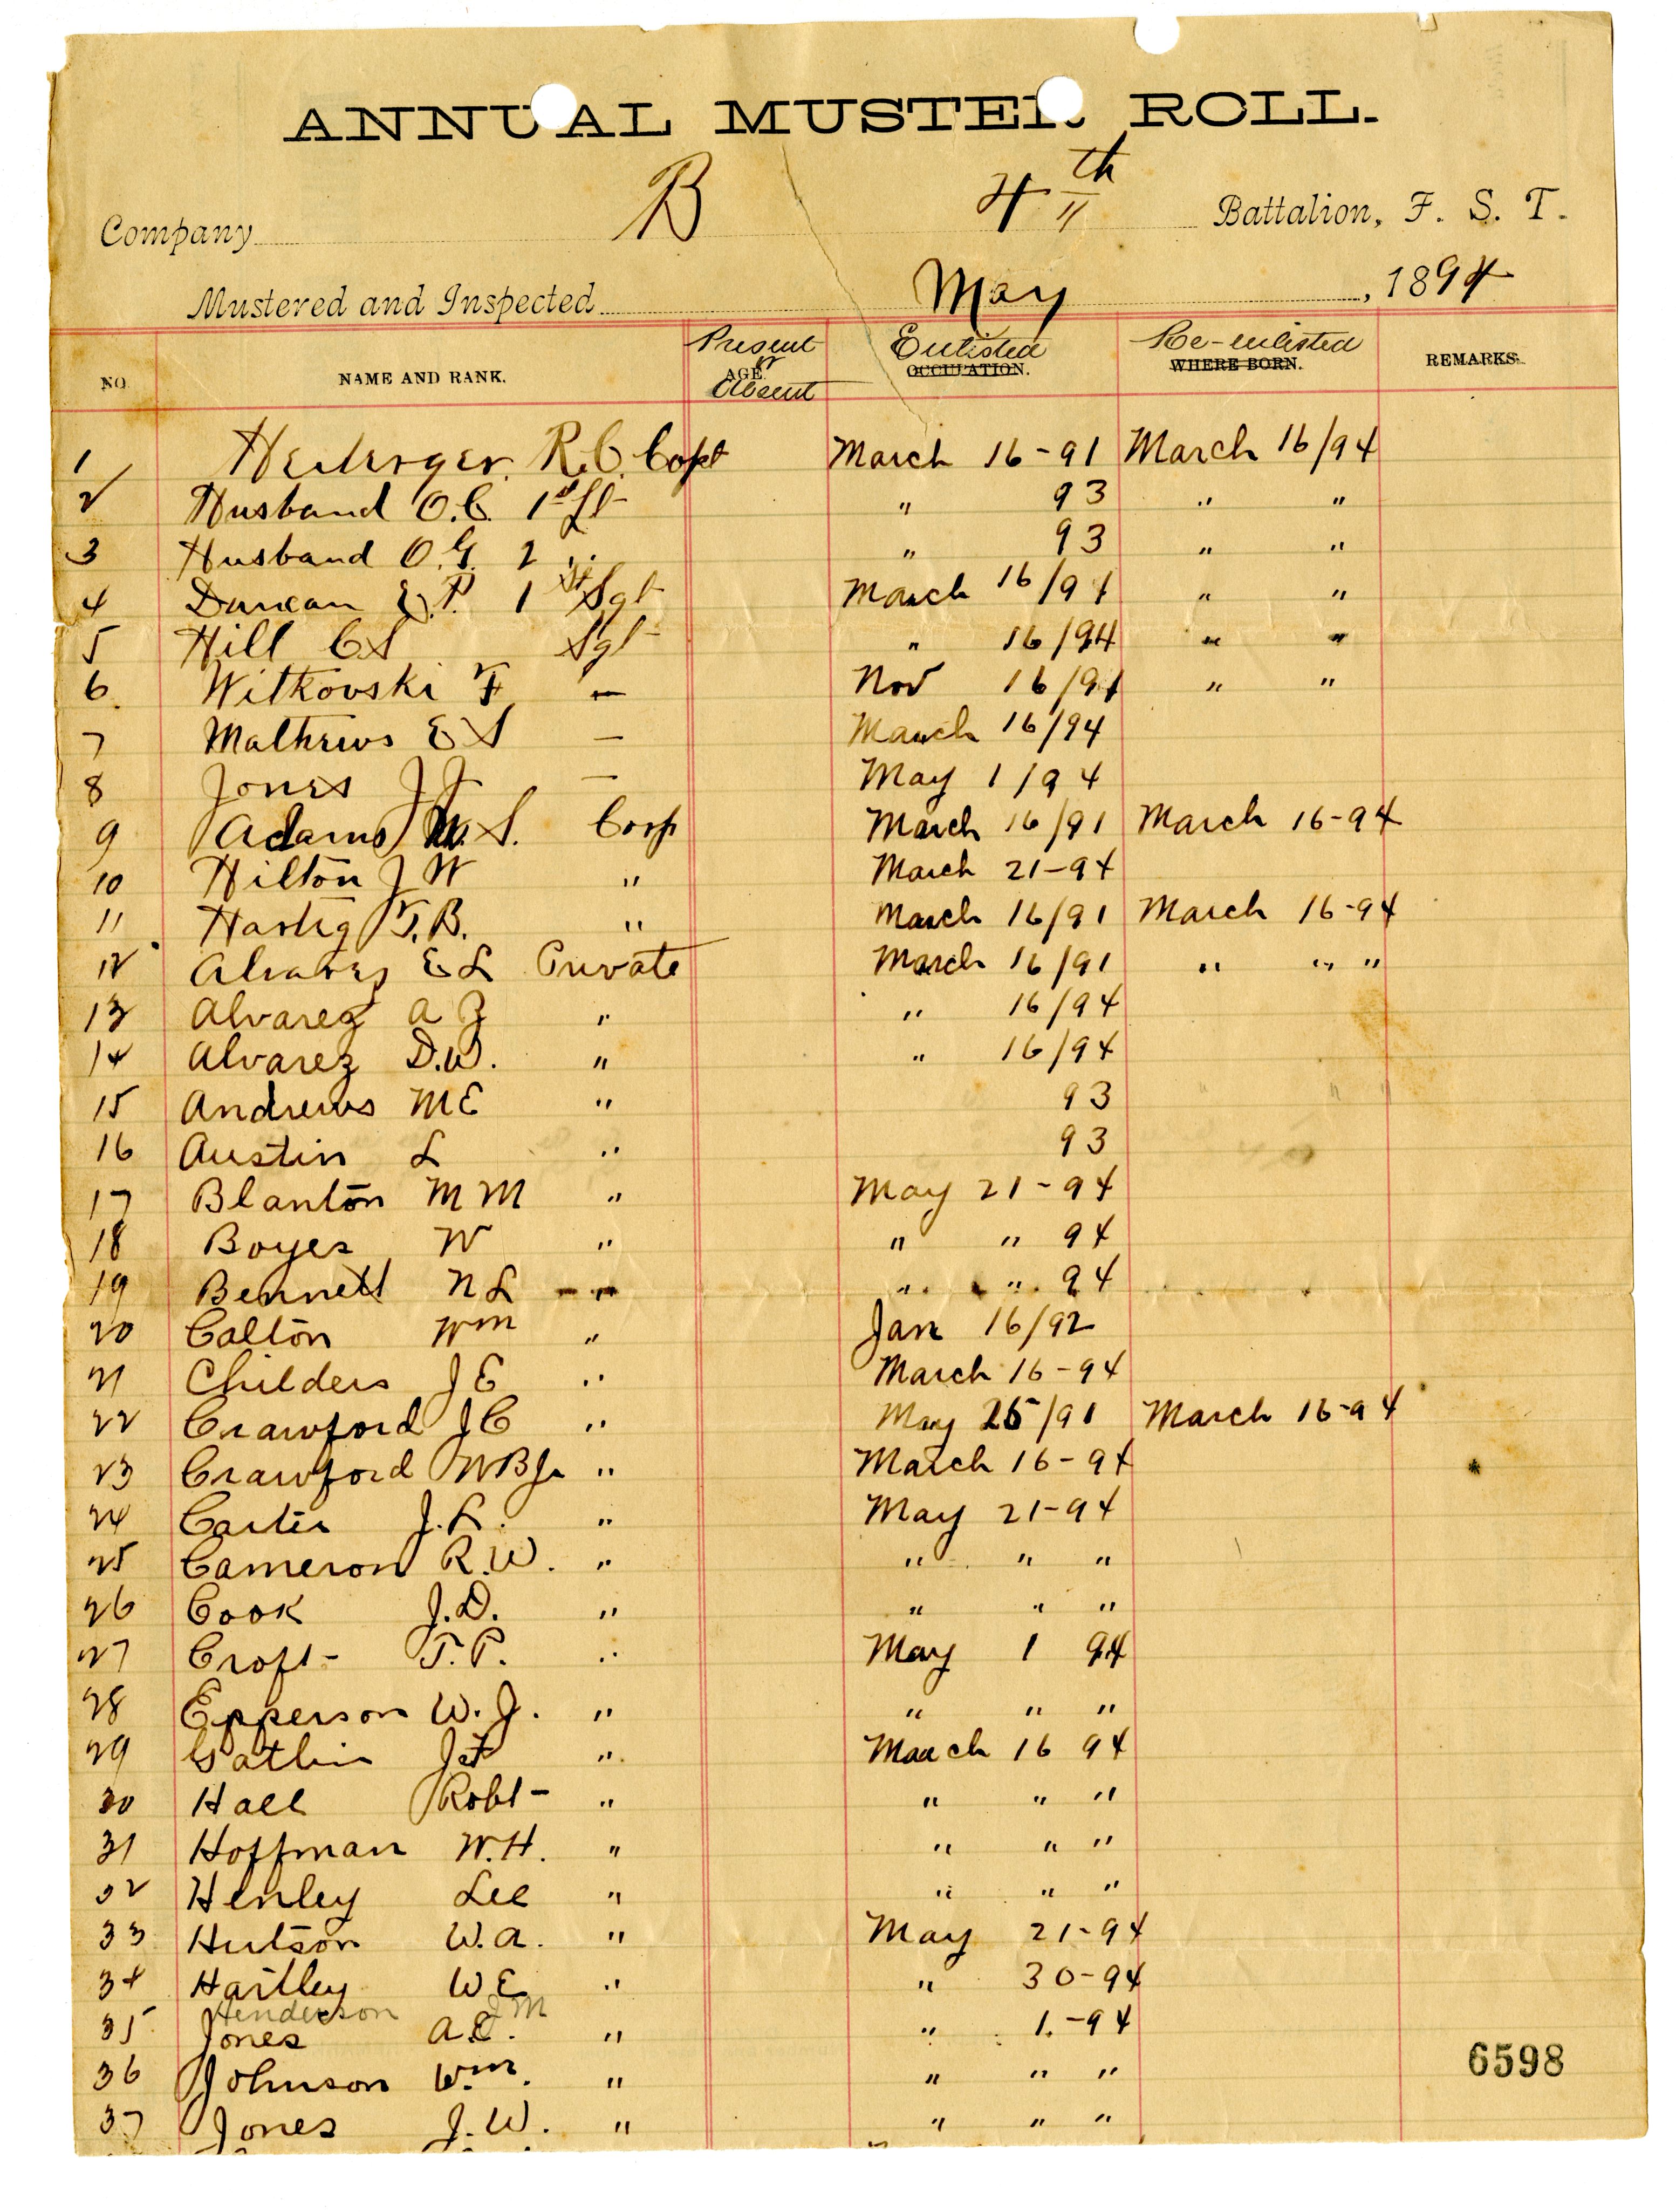 ANNUAL MUSTER ROLL.
Company B 4th " Battalion, F. S. T.
Mustered and Inspected May, 1894
NO. NAME AND RANK. Present or AGE. Absent Enlisted OCCUPATION. Re-enlisted WHERE BORN. REMARKS.
1 R.C. Capt March 16-91 March 16/94
2 Husband O.C. 1st Lt " 93 " "
3 Husband O.G. 2 " " 93 " "
4 Duncan E.P. 1st Sgt March 16/94 " "
5 Hill C S Sgt " 16/94 " "
6 Witkovski F — Nov 16/91 " "
7 Mathews E S — March 16/94
8 Jones J J — May 1/94
9 Adams W.S. Corp March 16/91 March 16-94
10 Hilton J W " March 21-94
11 Hartig F.B. " March 16/91 March 16-94
12 Alvarez E L Private March 16/91 " " "
13 Alvarez A Z " " 16/94
14 Alvarez D.W. " " 16/94
15 Andrews M E " 93
16 Austin L " 93
17 Blanton M M " May 21-94
18 Boyer W " " " 94
19 Bennett N L " " " 94
20 Colton Wm " Jan 16/92
21 Childers J E " March 16-94
22 Crawford J C " May 25/91 March 16-94
23 Crawford W B Jr " March 16-94
24 Carter J.L. " May 21-94
25 Cameron R.W. " " " "
26 Cook J.D. " " " "
27 Croft T.P. " May 1 94
28 Epperson W.J. " " " "
29 Gatlin J F " March 16 94
30 Hall Robt " " " "
31 Hoffman W.H. " " " "
32 Henley Lee " " " "
33 Hutson W.A. " May 21-94
34 Hartley W E " " 30-94
Henderson J M
35 Jones A.E. " " 1.-94
36 Johnson Wm. " " " "
37 Jones J.W. " " " "
6598